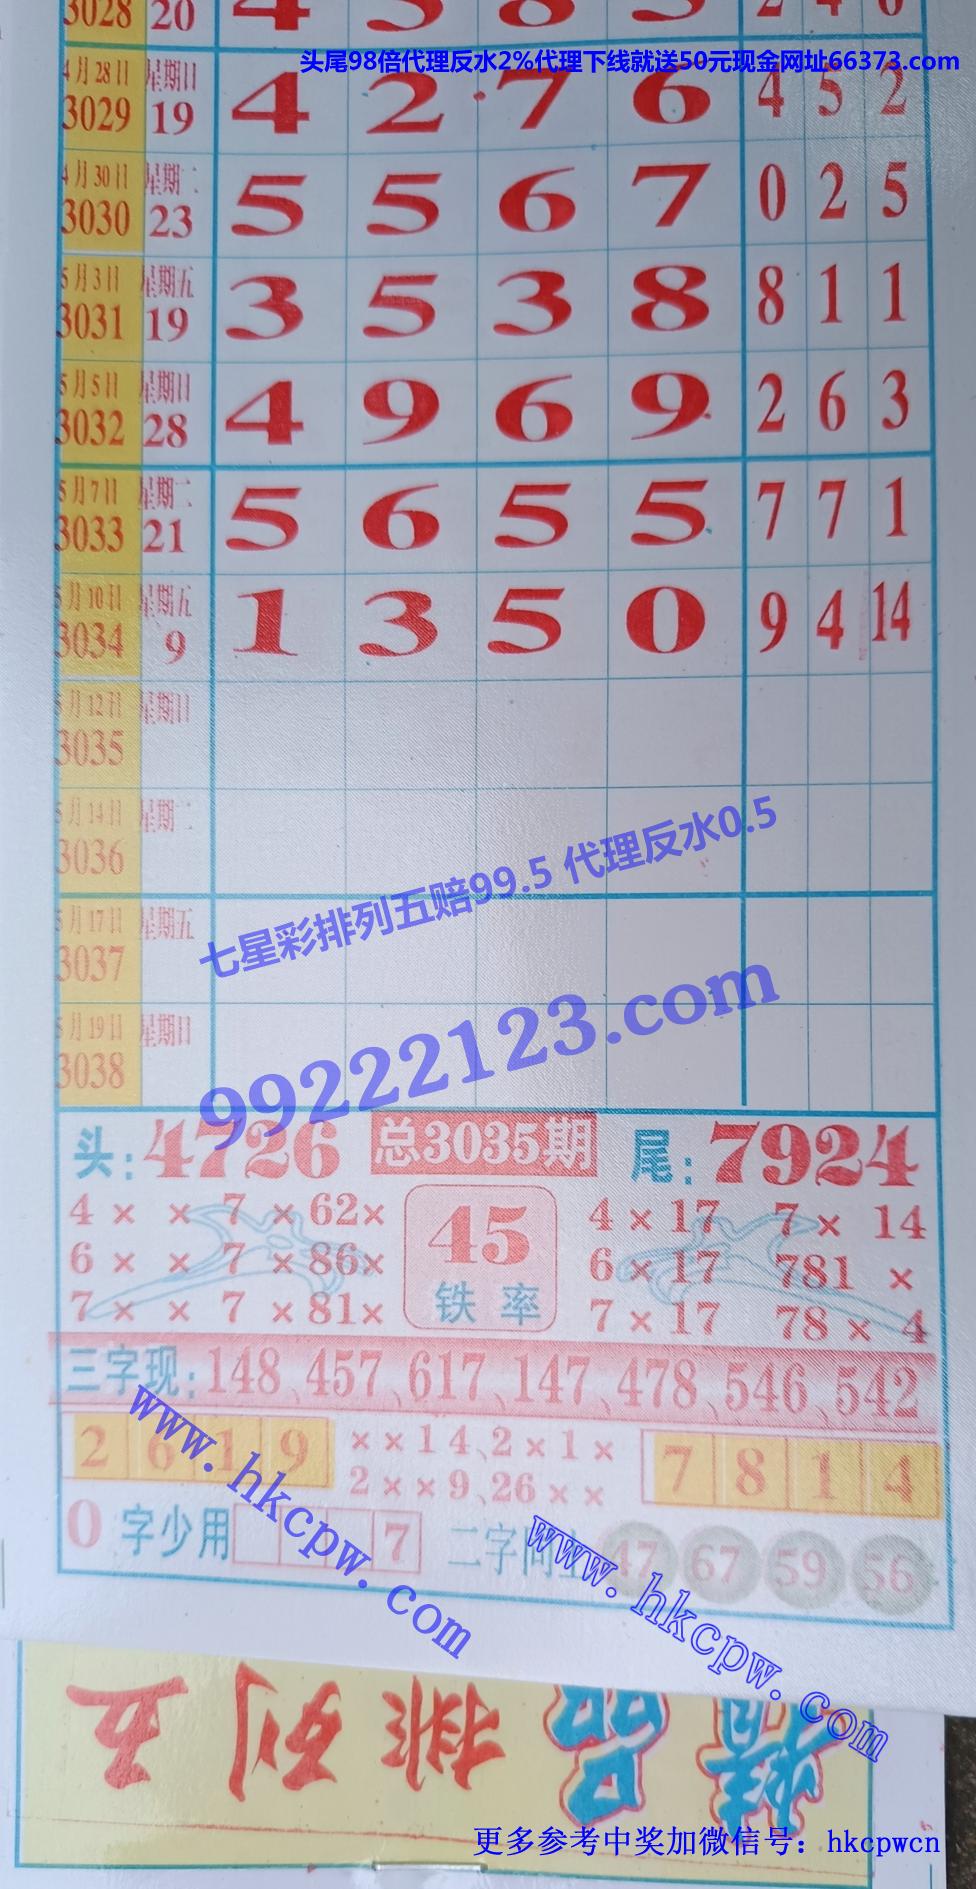 3028 20 4 3 8 3 2 4 0
头尾98倍代理反水2%代理下线就送50元现金网址66373.com
4月28日 星期日
3029 19 4 2 7 6 4 5 2
4月30日 星期二
3030 23 5 5 6 7 0 2 5
5月3日 星期五
3031 19 3 5 3 8 8 1 1
5月5日 星期日
3032 28 4 9 6 9 2 6 3
5月7日 星期二
3033 21 5 6 5 5 7 7 1
5月10日 星期五
3034 9 1 3 5 0 9 4 14
5月12日 星期日
3035
5月14日 星期二
3036
七星彩排列五赔99.5 代理反水0.5
5月17日 星期五
3037
99222123.com
5月19日 星期日
3038
头:4726 总3035期 尾:7924
4 × × 7 × 62× 45 4 × 17 7 × 14
6 × × 7 × 86× 铁率 6 × 17 781 ×
7 × × 7 × 81× 7 × 17 78 × 4
三字现:148、457、617、147、478、546、542
2 6 1 9 ××14、2×1× 7 8 1 4
2××9、26××
www.hkcpw.com
0 字少用 7 二字同上 47 67 59 56
www.hkcpw.com
精品 排列五
更多参考中奖加微信号：hkcpwcn